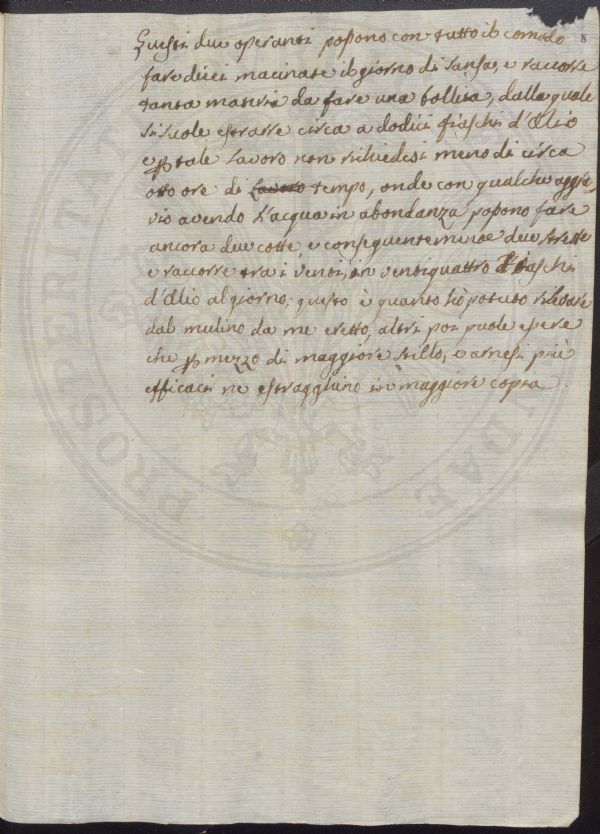 8
Questi due operanti possono con tutto il comodo
fare dieci macinate il giorno di sansa, e raccorre
tanta materia da fare una bollita, dalla quale
si suole estrarre circa a dodici fiaschi d'Olio
e p tale lavoro non richiedesi meno di circa
otto ore di Lavoro tempo, onde con qualche aggra,
vio avendo l'acqua in abondanza possono fare
ancora due cotte, e conseguentemente due strette
e raccorre tra i venti, in ventiquattro Fiaschi
d'Olio al giorno; questo è quanto hò potuto rilevare
dal mulino da me eretto, altri poi puole essere
che p mezzo di maggiore stillo, e arnesi più
efficaci ne estragghino in maggiore copia.
PROSPERITATI
IDAE